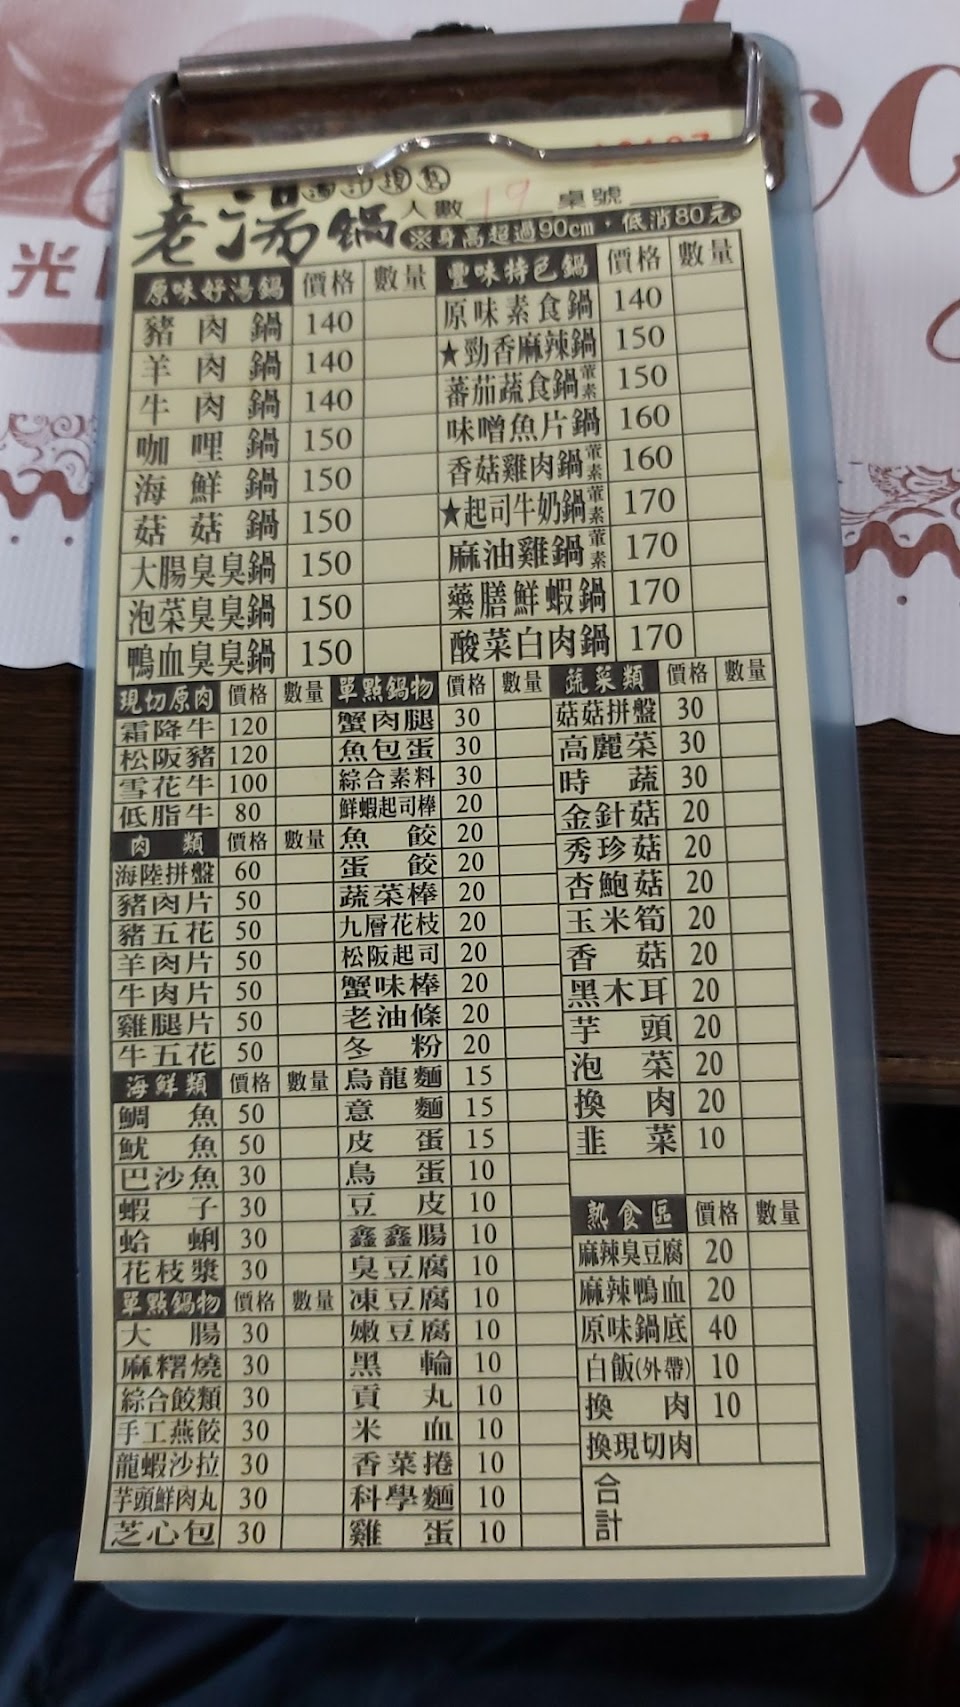 老湯鍋
人數 19 桌號
※身高超過90cm，低消80元。
光
原味好湯鍋 價格 數量
豬肉鍋 140
羊肉鍋 140
牛肉鍋 140
咖哩鍋 150
海鮮鍋 150
菇菇鍋 150
大腸臭臭鍋 150
泡菜臭臭鍋 150
鴨血臭臭鍋 150
豐味特色鍋 價格 數量
原味素食鍋 140
★勁香麻辣鍋 150
蕃茄蔬食鍋 葷素 150
味噌魚片鍋 160
香菇雞肉鍋 葷素 160
★起司牛奶鍋 葷素 170
麻油雞鍋 葷素 170
藥膳鮮蝦鍋 170
酸菜白肉鍋 170
現切原肉 價格 數量
霜降牛 120
松阪豬 120
雪花牛 100
低脂牛 80
肉類 價格 數量
海陸拼盤 60
豬肉片 50
豬五花 50
羊肉片 50
牛肉片 50
雞腿片 50
牛五花 50
海鮮類 價格 數量
鯛魚 50
魷魚 50
巴沙魚 30
蝦子 30
蛤蜊 30
花枝漿 30
單點鍋物 價格 數量
大腸 30
麻糬燒 30
綜合餃類 30
手工燕餃 30
龍蝦沙拉 30
芋頭鮮肉丸 30
芝心包 30
單點鍋物 價格 數量
蟹肉腿 30
魚包蛋 30
綜合素料 30
鮮蝦起司棒 20
魚餃 20
蛋餃 20
蔬菜棒 20
九層花枝 20
松阪起司 20
蟹味棒 20
老油條 20
冬粉 20
烏龍麵 15
意麵 15
皮蛋 15
鳥蛋 10
豆皮 10
鑫鑫腸 10
臭豆腐 10
凍豆腐 10
嫩豆腐 10
黑輪 10
貢丸 10
米血 10
香菜捲 10
科學麵 10
雞蛋 10
蔬菜類 價格 數量
菇菇拼盤 30
高麗菜 30
時蔬 30
金針菇 20
秀珍菇 20
杏鮑菇 20
玉米筍 20
香菇 20
黑木耳 20
芋頭 20
泡菜 20
換肉 20
韭菜 10
熟食區 價格 數量
麻辣臭豆腐 20
麻辣鴨血 20
原味鍋底 40
白飯(外帶) 10
換肉 10
換現切肉
合計